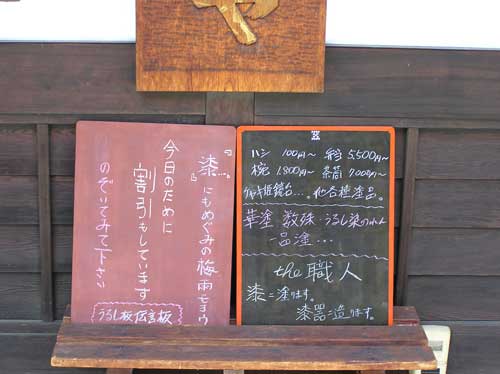 『漆』
にもめぐみの梅雨
今日のために
割引もしています
のぞいてみて下さい
うるし板伝言板
ハシ 100円〜
5,500円〜
椀 1,800円〜
7,000円〜
他各種塗品。
華塗 数珠 うるし染の
一品塗…
the 職人
漆ニ塗ります。
漆器ニ造ります。